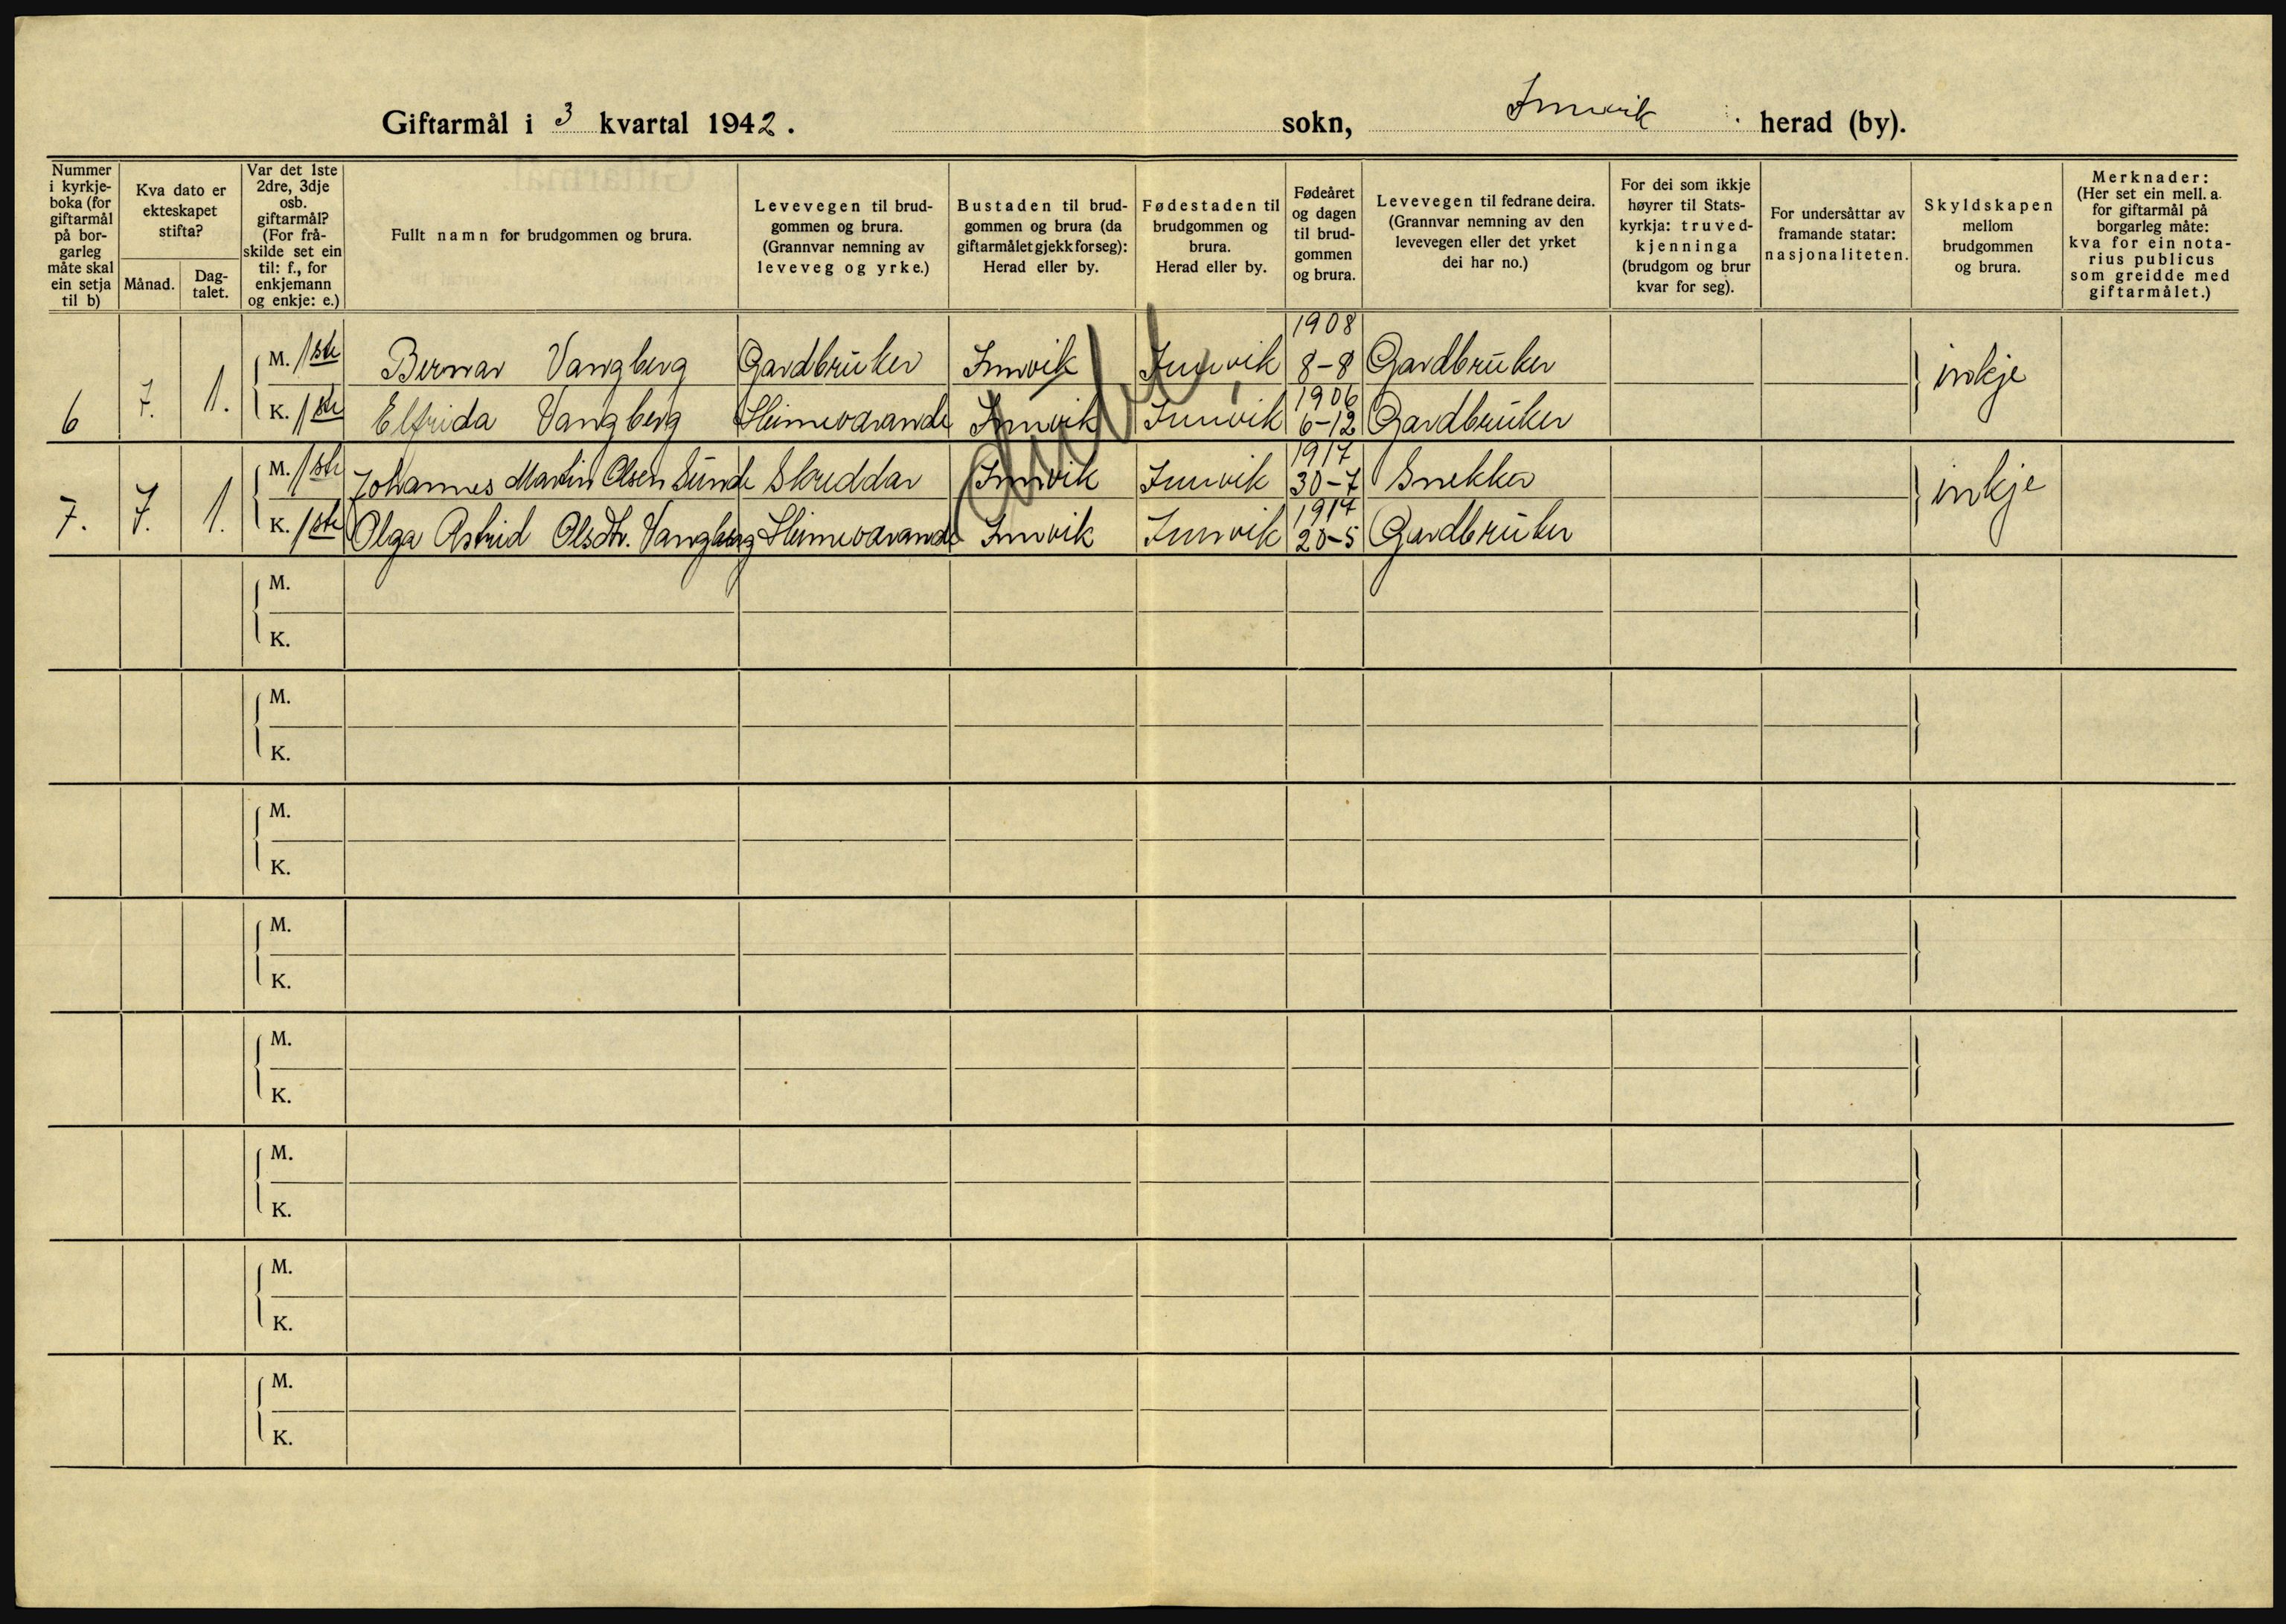 Giftarmål i 3 kvartal 1942. sokn, Innvik herad (by).
Nummer i kyrkje- boka (for giftarmål på bor- garleg måte skal ein setja til b)
Kva dato er ekteskapet stifta?
Månad.
Dag- talet.
Var det 1ste 2dre, 3dje osb. giftarmål? (For frå- skilde set ein til: f., for enkjemann og enkje: e.)
Fullt namn for brudgommen og brura.
Levevegen til brud- gommen og brura. (Grannvar nemning av leveveg og yrke.)
Bustaden til brud- gommen og brura (da giftarmålet gjekk for seg): Herad eller by.
Fødestaden til brudgommen og brura. Herad eller by.
Fødeåret og dagen til brud- gommen og brura.
Levevegen til fedrane deira. (Grannvar nemning av den levevegen eller det yrket dei har no.)
For dei som ikkje høyrer til Stats- kyrkja: truved- kjenninga (brudgom og brur kvar for seg).
For undersåttar av framande statar: nasjonaliteten.
Skyldskapen mellom brudgommen og brura.
Merknader: (Her set ein mell. a. for giftarmål på borgarleg måte: kva for ein nota- rius publicus som greidde med giftarmålet.)
6 7. 1. M. 1ste Bernar Vangberg Gardbruker Innvik Innvik 1908 8-8 Gardbruker inkje
K. 1ste Elfrida Vangberg Heimeværande Innvik Innvik 1906 6-12 Gardbruker
7. 7. 1. M. 1ste Johannes Martin Olsen Sunde Skreddar Innvik Innvik 1917 30-7 Snekker inkje
K. 1ste Olga Astrid Olsdtr. Vangberg Heimeværande Innvik Innvik 1914 20-5 Gardbruker
M.
K.
M.
K.
M.
K.
M.
K.
M.
K.
M.
K.
M.
K.
M.
K.